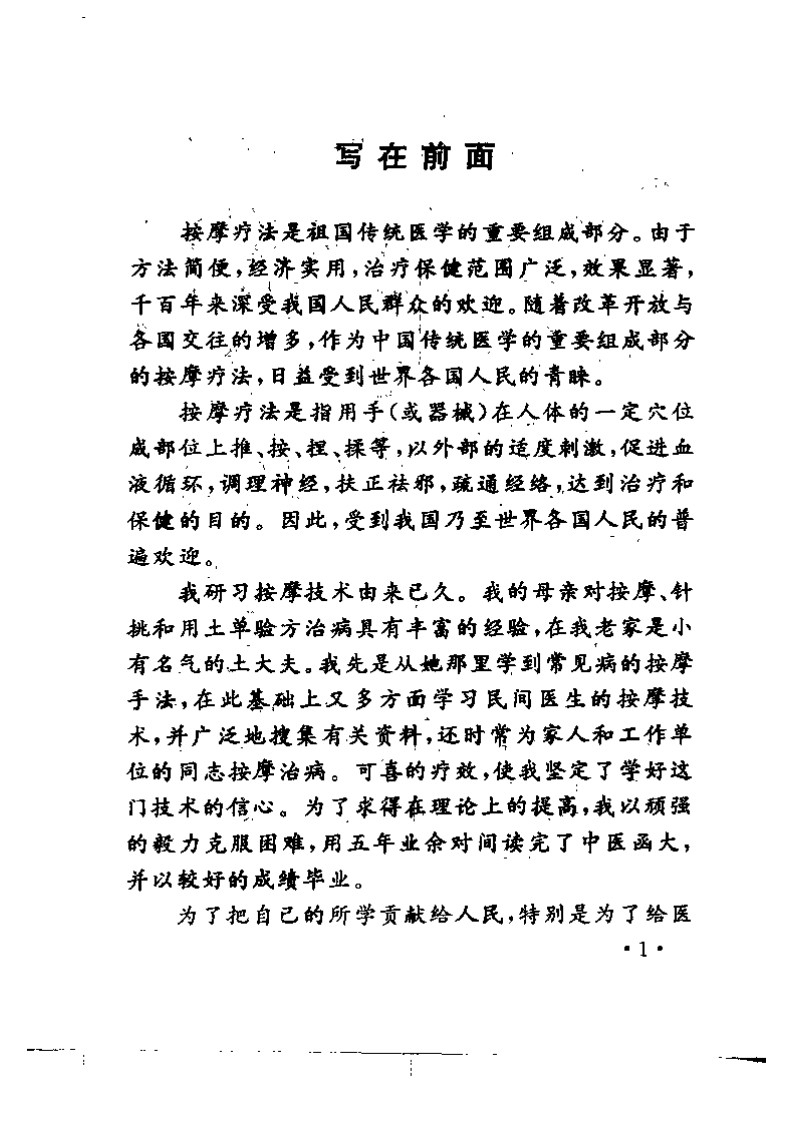 写在前面
按摩疗法是祖国传统医学的重要组成部分。由于
方法简便,经济实用,治疗保健范围广泛,效果显著,
千百年来深受我国人民群众的欢迎。随着改革开放与
各国交往的增多,作为中国传统医学的重要组成部分
的按摩疗法,日益受到世界各国人民的青睐。
按摩疗法是指用手(或器械)在人体的一定穴位
或部位上推、按、捏、揉等,以外部的适度刺激,促进血
液循环,调理神经,扶正祛邪,疏通经络,达到治疗和
保健的目的。因此,受到我国乃至世界各国人民的普
遍欢迎。
我研习按摩技术由来已久。我的母亲对按摩、针
挑和用土单验方治病具有丰富的经验,在我老家是小
有名气的土大夫。我先是从她那里学到常见病的按摩
手法,在此基础上又多方面学习民间医生的按摩技
术,并广泛地搜集有关资料,还时常为家人和工作单
位的同志按摩治病。可喜的疗效,使我坚定了学好这
门技术的信心。为了求得在理论上的提高,我以顽强
的毅力克服困难,用五年业余时间读完了中医函大,
并以较好的成绩毕业。
为了把自己的所学贡献给人民,特别是为了给医
·1·